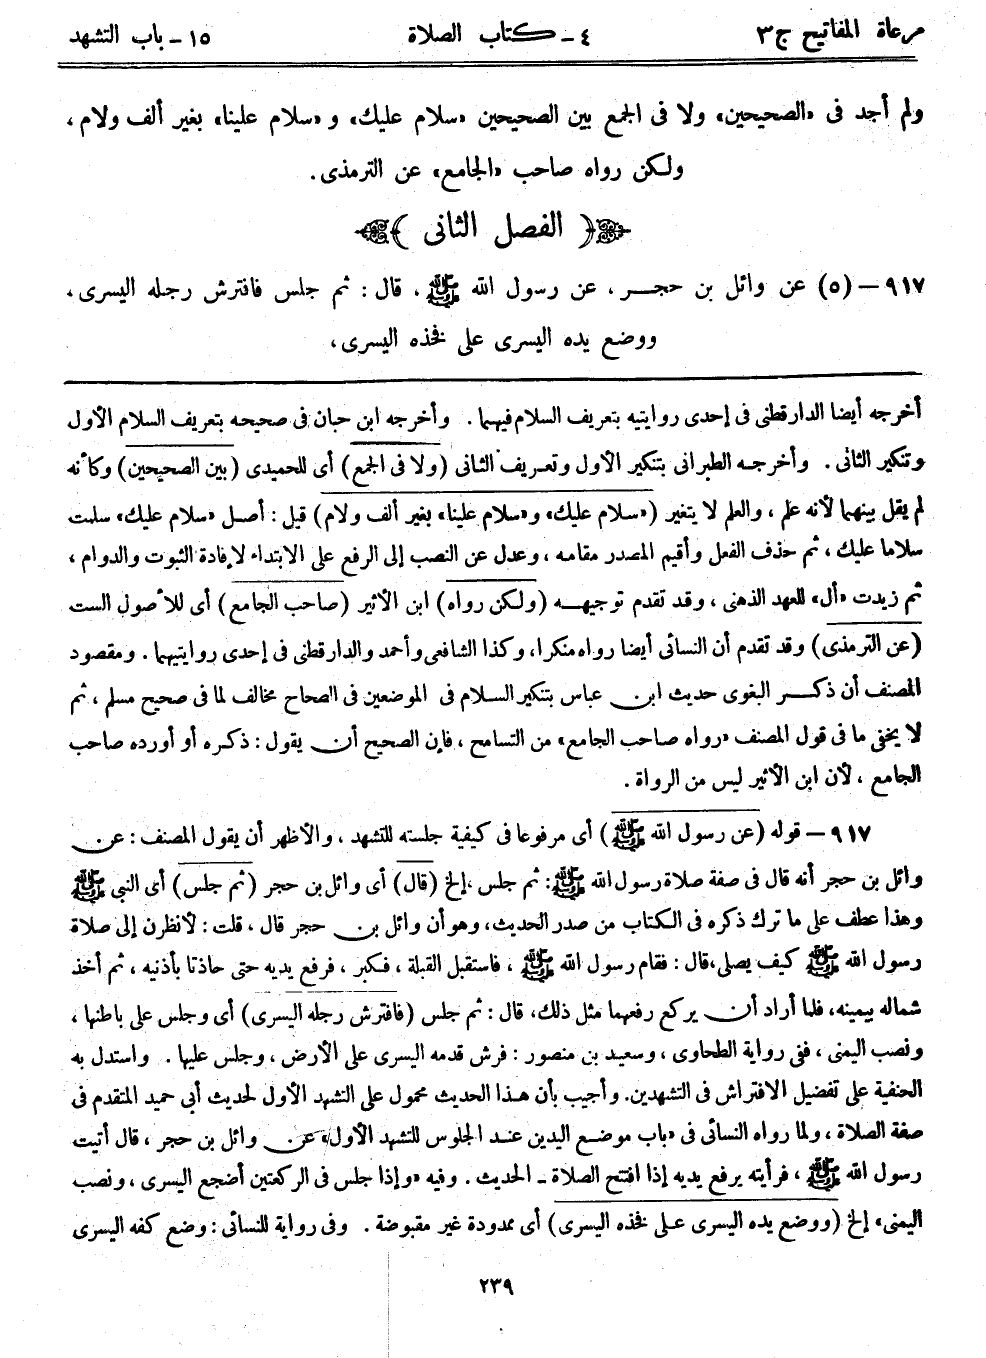 مرعاة المفاتيح ج ٣ ٤ - كتاب الصلاة ١٥ - باب التشهد
ولم أجد فى «الصحيحين» ولا فى الجمع بين الصحيحين «سلام عليك» و «سلام علينا» بغير ألف ولام،
ولكن رواه صاحب «الجامع» عن الترمذى.
﴿ الفصل الثانى ﴾
٩١٧ - (٥) عن وائل بن حجر، عن رسول الله ﷺ، قال: ثم جلس فافترش رجله اليسرى،
ووضع يده اليسرى على فخذه اليسرى،
أخرجه أيضا الدارقطنى فى إحدى روايتيه بتعريف السلام فيهما. وأخرجه ابن حبان فى صحيحه بتعريف السلام الأول
وتنكير الثانى. وأخرجه الطبرانى بتنكير الأول وتعريف الثانى (ولا فى الجمع) أى للحميدى (بين الصحيحين) وكأنه
لم يقل بينهما لأنه علم، والعلم لا يتغير («سلام عليك» و«سلام علينا» بغير ألف ولام) قيل: أصل «سلام عليك» سلمت
سلاما عليك، ثم حذف الفعل وأقيم المصدر مقامه، وعدل عن النصب إلى الرفع على الابتداء لإفادة الثبوت والدوام،
ثم زيدت «أل» للعهد الذهنى، وقد تقدم توجيهه (ولكن رواه) ابن الأثير (صاحب الجامع) أى للأصول الست
(عن الترمذى) وقد تقدم أن النسائى أيضا رواه منكرا، وكذا الشافعى وأحمد والدارقطنى فى إحدى روايتيهما. ومقصود
المصنف أن ذكر البغوى حديث ابن عباس بتنكير السلام فى الموضعين فى الصحاح مخالف لما فى صحيح مسلم، ثم
لا يخفى ما فى قول المصنف «رواه صاحب الجامع» من التسامح، فإن الصحيح أن يقول: ذكره أو أورده صاحب
الجامع، لأن ابن الأثير ليس من الرواة.
٩١٧ - قوله (عن رسول الله ﷺ) أى مرفوعا فى كيفية جلسته للتشهد، والأظهر أن يقول المصنف: عن
وائل بن حجر أنه قال فى صفة صلاة رسول الله ﷺ: ثم جلس، إلخ (قال) أى وائل بن حجر (ثم جلس) أى النبى ﷺ
وهذا عطف على ما ترك ذكره فى الكتاب من صدر الحديث، وهو أن وائل بن حجر قال، قلت: لأنظرن إلى صلاة
رسول الله ﷺ كيف يصلى، قال: فقام رسول الله ﷺ، فاستقبل القبلة، فكبر، فرفع يديه حتى حاذتا بأذنيه، ثم أخذ
شماله بيمينه، فلما أراد أن يركع رفعهما مثل ذلك، قال: ثم جلس (فافترش رجله اليسرى) أى وجلس على باطنها،
ونصب اليمنى، ففى رواية الطحاوى، وسعيد بن منصور: فرش قدمه اليسرى على الأرض، وجلس عليها. واستدل به
الحنفية على تفضيل الافتراش فى التشهدين. وأجيب بأن هذا الحديث محمول على التشهد الأول لحديث أبى حميد المتقدم فى
صفة الصلاة، ولما رواه النسائى فى «باب موضع اليدين عند الجلوس للتشهد الأول» عن وائل بن حجر، قال أتيت
رسول الله ﷺ، فرأيته يرفع يديه إذا افتتح الصلاة - الحديث. وفيه «وإذا جلس فى الركعتين أضجع اليسرى، ونصب
اليمنى» إلخ (ووضع يده اليسرى على فخذه اليسرى) أى ممدودة غير مقبوضة. وفى رواية للنسائى: وضع كفه اليسرى
٢٣٩